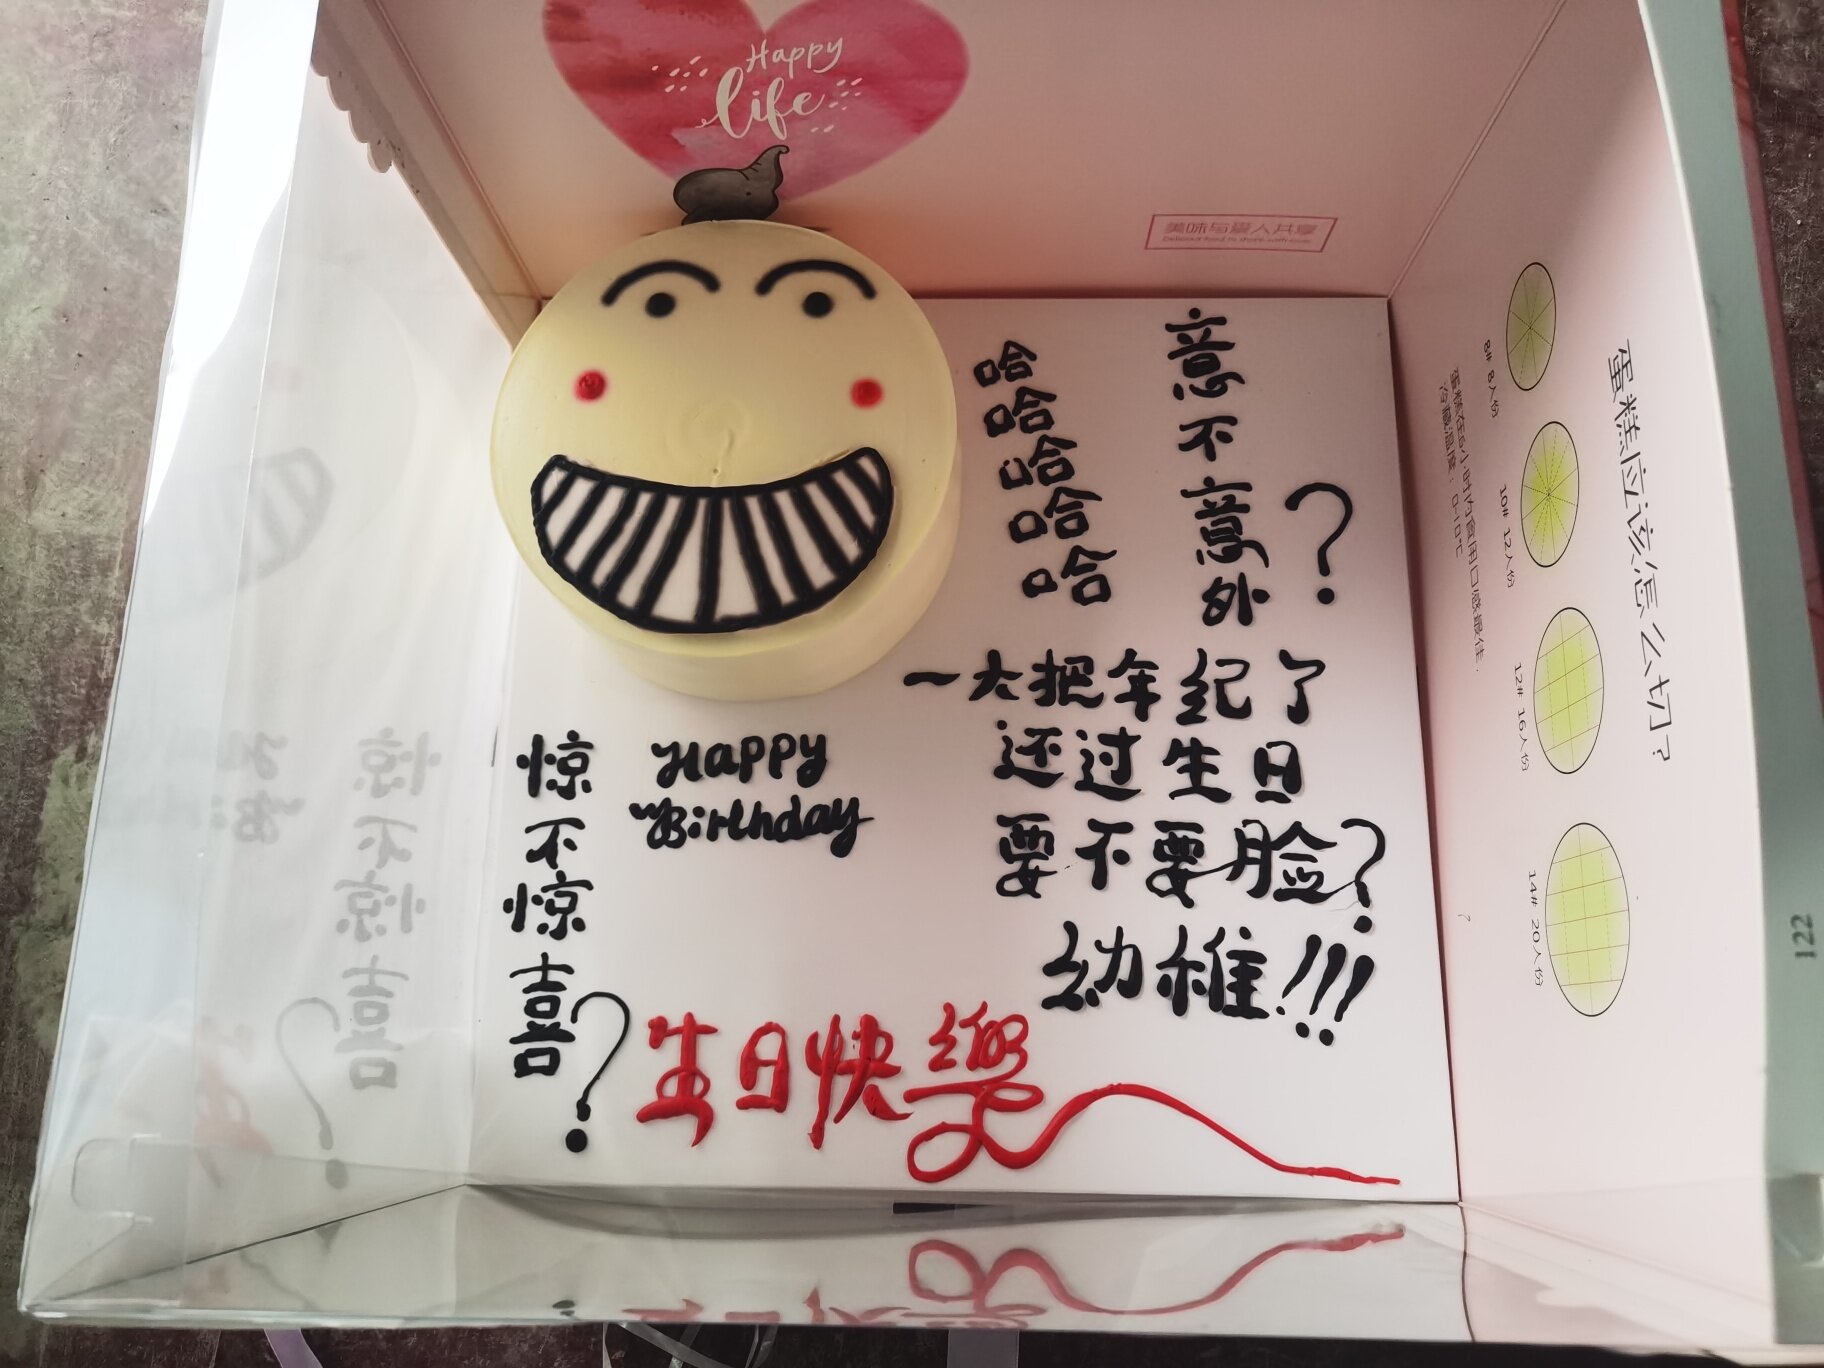 Happy
life
美味与爱人共享
Delicious food to share with love
哈哈哈哈哈
意不意外?
一大把年纪了
还过生日
要不要脸?
幼稚!!!
惊不惊喜?
Happy
Birthday
生日快樂
蛋糕应该怎么切?
蛋糕在2小时内食用口感最佳.
冷藏温度:0-10℃
8# 8人份
10# 12人份
12# 16人份
14# 20人份
122